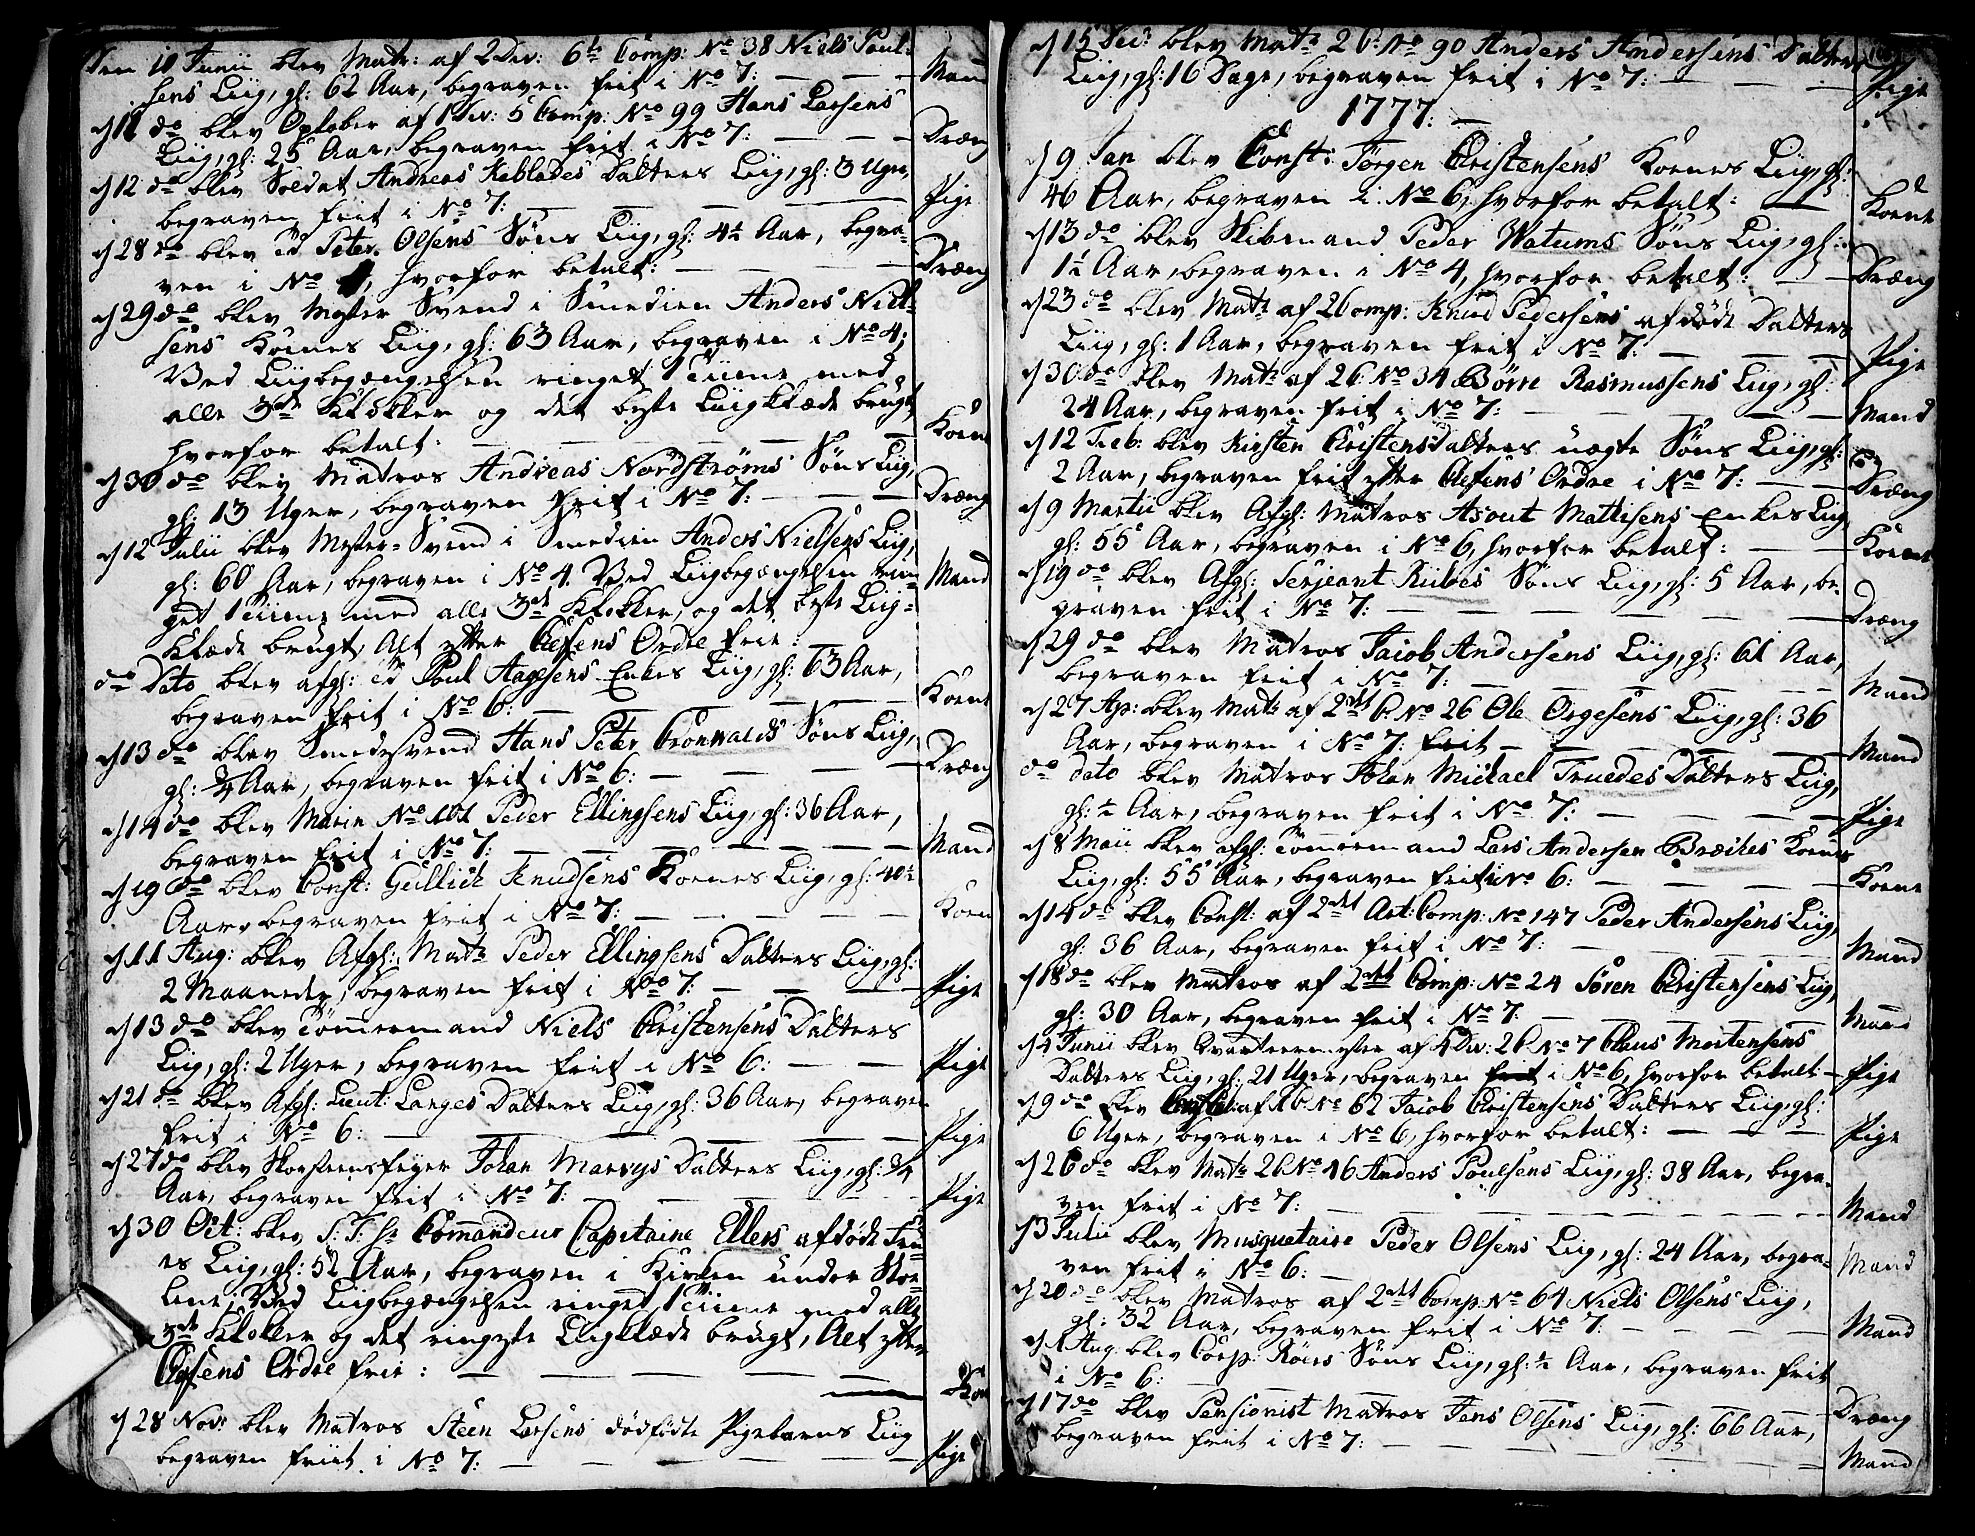 Den 10 Junii blev Matr: af 2 Div: 6te Comp: No 38 Niels Poul-
sens Liig, gl: 62 Aar, begraven frit i No 7: — — Mand
d 11 do blev Oplober af 1 Div: 5 Comp: No 99 Hans Larsens
Liig, gl: 25 Aar, begraven frit i No 7: — — — Dræng
d 12 do blev Soldat Andreas Kablades Datters Liig, gl: 3 Uger,
begraven frit i No 7: — — — Pige
d 28 do blev Peter Olsens Søns Liig, gl: 4½ Aar, begra-
ven i No 4, hvorfor betalt: — — — Dræng
d 29 do blev Mester Svend i Smedien Anders Niel-
sens Kones Liig, gl: 63 Aar, begraven i No 4;
Ved Liigbegængelsen ringet 1 Time med
alle 3de Klokker og det beste Liigklæde brugt
hvorfor betalt: — — — Kone
d 30 do blev Matros Andreas Nordstrøms Søns Liig,
gl: 13 Uger, begraven frit i No 7: — — — Dræng
d 12 Julii blev Mester-Svend i Smedien Anders Nielsens Liig,
gl: 60 Aar, begraven i No 4. Ved Liigbegængelsen rin-
get 1 Time med alle 3de Klokker, og det beste Liig-
klæde brugt, Alt efter Chefens Ordre frie: Mand
do Dato blev afgl: Poul Aagesens Enkes Liig, gl: 63 Aar,
begraven frit i No 6: — — — Kone
d 13 do blev Smedesvend Hans Peter Grönwalds Søns Liig,
gl: ¾ Aar, begraven frit i No 6: — — — Dræng
d 14 do blev Marin No 101 Peder Ellingsens Liig, gl: 36 Aar,
begraven frit i No 7: — — — Mand
d 19 do blev Const: Gullich Knudsens Kones Liig, gl: 40½
Aar, begraven frit i No 7: — — — Kone
d 11 Aug: blev Afgl: Matr Peder Ellingsens Datters Liig, gl:
2 Maaneder, begraven frit i No 7: — — — Pige
d 13 do blev Tømmermand Niels Christensens Datters
Liig, gl: 2 Uger, begraven frit i No 6: — — Pige
d 21 do blev Afgl: Lieut: Langes Datters Liig, gl: 36 Aar, begraven
frit i No 6: — — — Pige
d 27 do blev Skorsteensfeyer Johan Marvys Datters Liig, gl: ¾
Aar, begraven frit i No 7: — — — Pige
d 30 Oct: blev S: T: Hr Commandeur Capitaine Ellers afdøde Fru-
es Liig, gl: 52 Aar, begraven i Kirken under Stoe-
lene; Ved Liigbegængelsen ringet 1 Time med alle
3de Klokker og det ringeste Liigklæde brugt, Alt efter
Chefens Ordre frie: — — — Kone
d 28 Nov: blev Matros Steen Larsens dødfødte Pigebarns Liig
begraven friit i No 7: — — — Pige
d 15 Dec: blev Matr 2 C: No 90 Anders Andersens Datters
Liig, gl: 16 Dage, begraven frit i No 7: — — — Pige
1777: —
d 9 Jan blev Const: Jørgen Christensens Kones Liig, gl:
46 Aar, begraven i No 6, hvorfor betalt: — Kone
d 13 do blev Skibmand Peder Watums Søns Liig, gl:
1½ Aar, begraven i No 4, hvorfor betalt: — — Dræng
d 23 do blev Matr af 2 Comp: Knud Pedersens afdøde Datters
Liig, gl: 1 Aar, begraven frit i No 7: — — — Pige
d 30 do blev Matr af 2 C: No 34 Børre Rasmussens Liig, gl:
24 Aar, begraven frit i No 7: — — — Mand
d 12 Feb: blev Kirsten Christensdatters uægte Søns Liig, gl:
2 Aar, begraven frit efter Chefens Ordre i No 7: — — Dræng
d 9 Martii blev Afgl: Matros Asout Mathisens Enkes Liig,
gl: 55 Aar, begraven i No 6, hvorfor betalt: — — Kone
d 19 do blev Afgl: Serjeant Riibes Søns Liig, gl: 5 Aar, be-
graven frit i No 7: — — — Dræng
d 29 do blev Matros Jacob Andersens Liig, gl: 61 Aar,
begraven frit i No 7: — — — Mand
d 27 Ap: blev Matr af 2det C: No 26 Ole Orgesens Liig, gl: 36
Aar, begraven i No 7: frit — — — Mand
do dato blev Matros Johan Michael Truedes Datters Liig,
gl: ½ Aar, begraven frit i No 7: — — — Pige
d 8 Maii blev afgl: Tømmermand Lars Andersen Bræckes Kones
Liig, gl: 55 Aar, begraven frit i No 6: — — — Kone
d 14 do blev Const: af 2det Art: Comp: No 147 Peder Andersens Liig,
gl: 36 Aar, begraven frit i No 7: — — — Mand
d 18 do blev Matros af 2det Comp: No 24 Søren Christensens Liig,
gl: 30 Aar, begraven frit i No 7: — — — Mand
d 4 Junii blev Qvarteermester af 4 Div: 2 C: No 7 Claus Mortensens
Datters Liig, gl: 21 Uger, begraven i No 6, hvorfor betalt — Pige
d 9 do blev af 1 C: No 62 Jacob Christensens Datters Liig, gl:
6 Uger, begraven i No 6, hvorfor betalt: — — Pige
d 26 do blev Matr 2 C: No 16 Anders Poulsens Liig, gl: 38 Aar, begra-
ven frit i No 7: — — — Mand
d 3 Julii blev Musquetaire Peder Olsens Liig, gl: 24 Aar, begra-
ven frit i No 6: — Mand
d 20 do blev Matros af 2det Comp: No 64 Niels Olsens Liig,
gl: 32 Aar, begraven frit i No 7: — — — Mand
d 1 Aug. blev Corp: Röers Søns Liig, gl: ½ Aar, begraven frit
i No 6: — — — Dræng
d 17 do blev Pensionist Matros Jens Olsens Liig, gl: 66 Aar,
begraven frit i No 7: — — — Mand